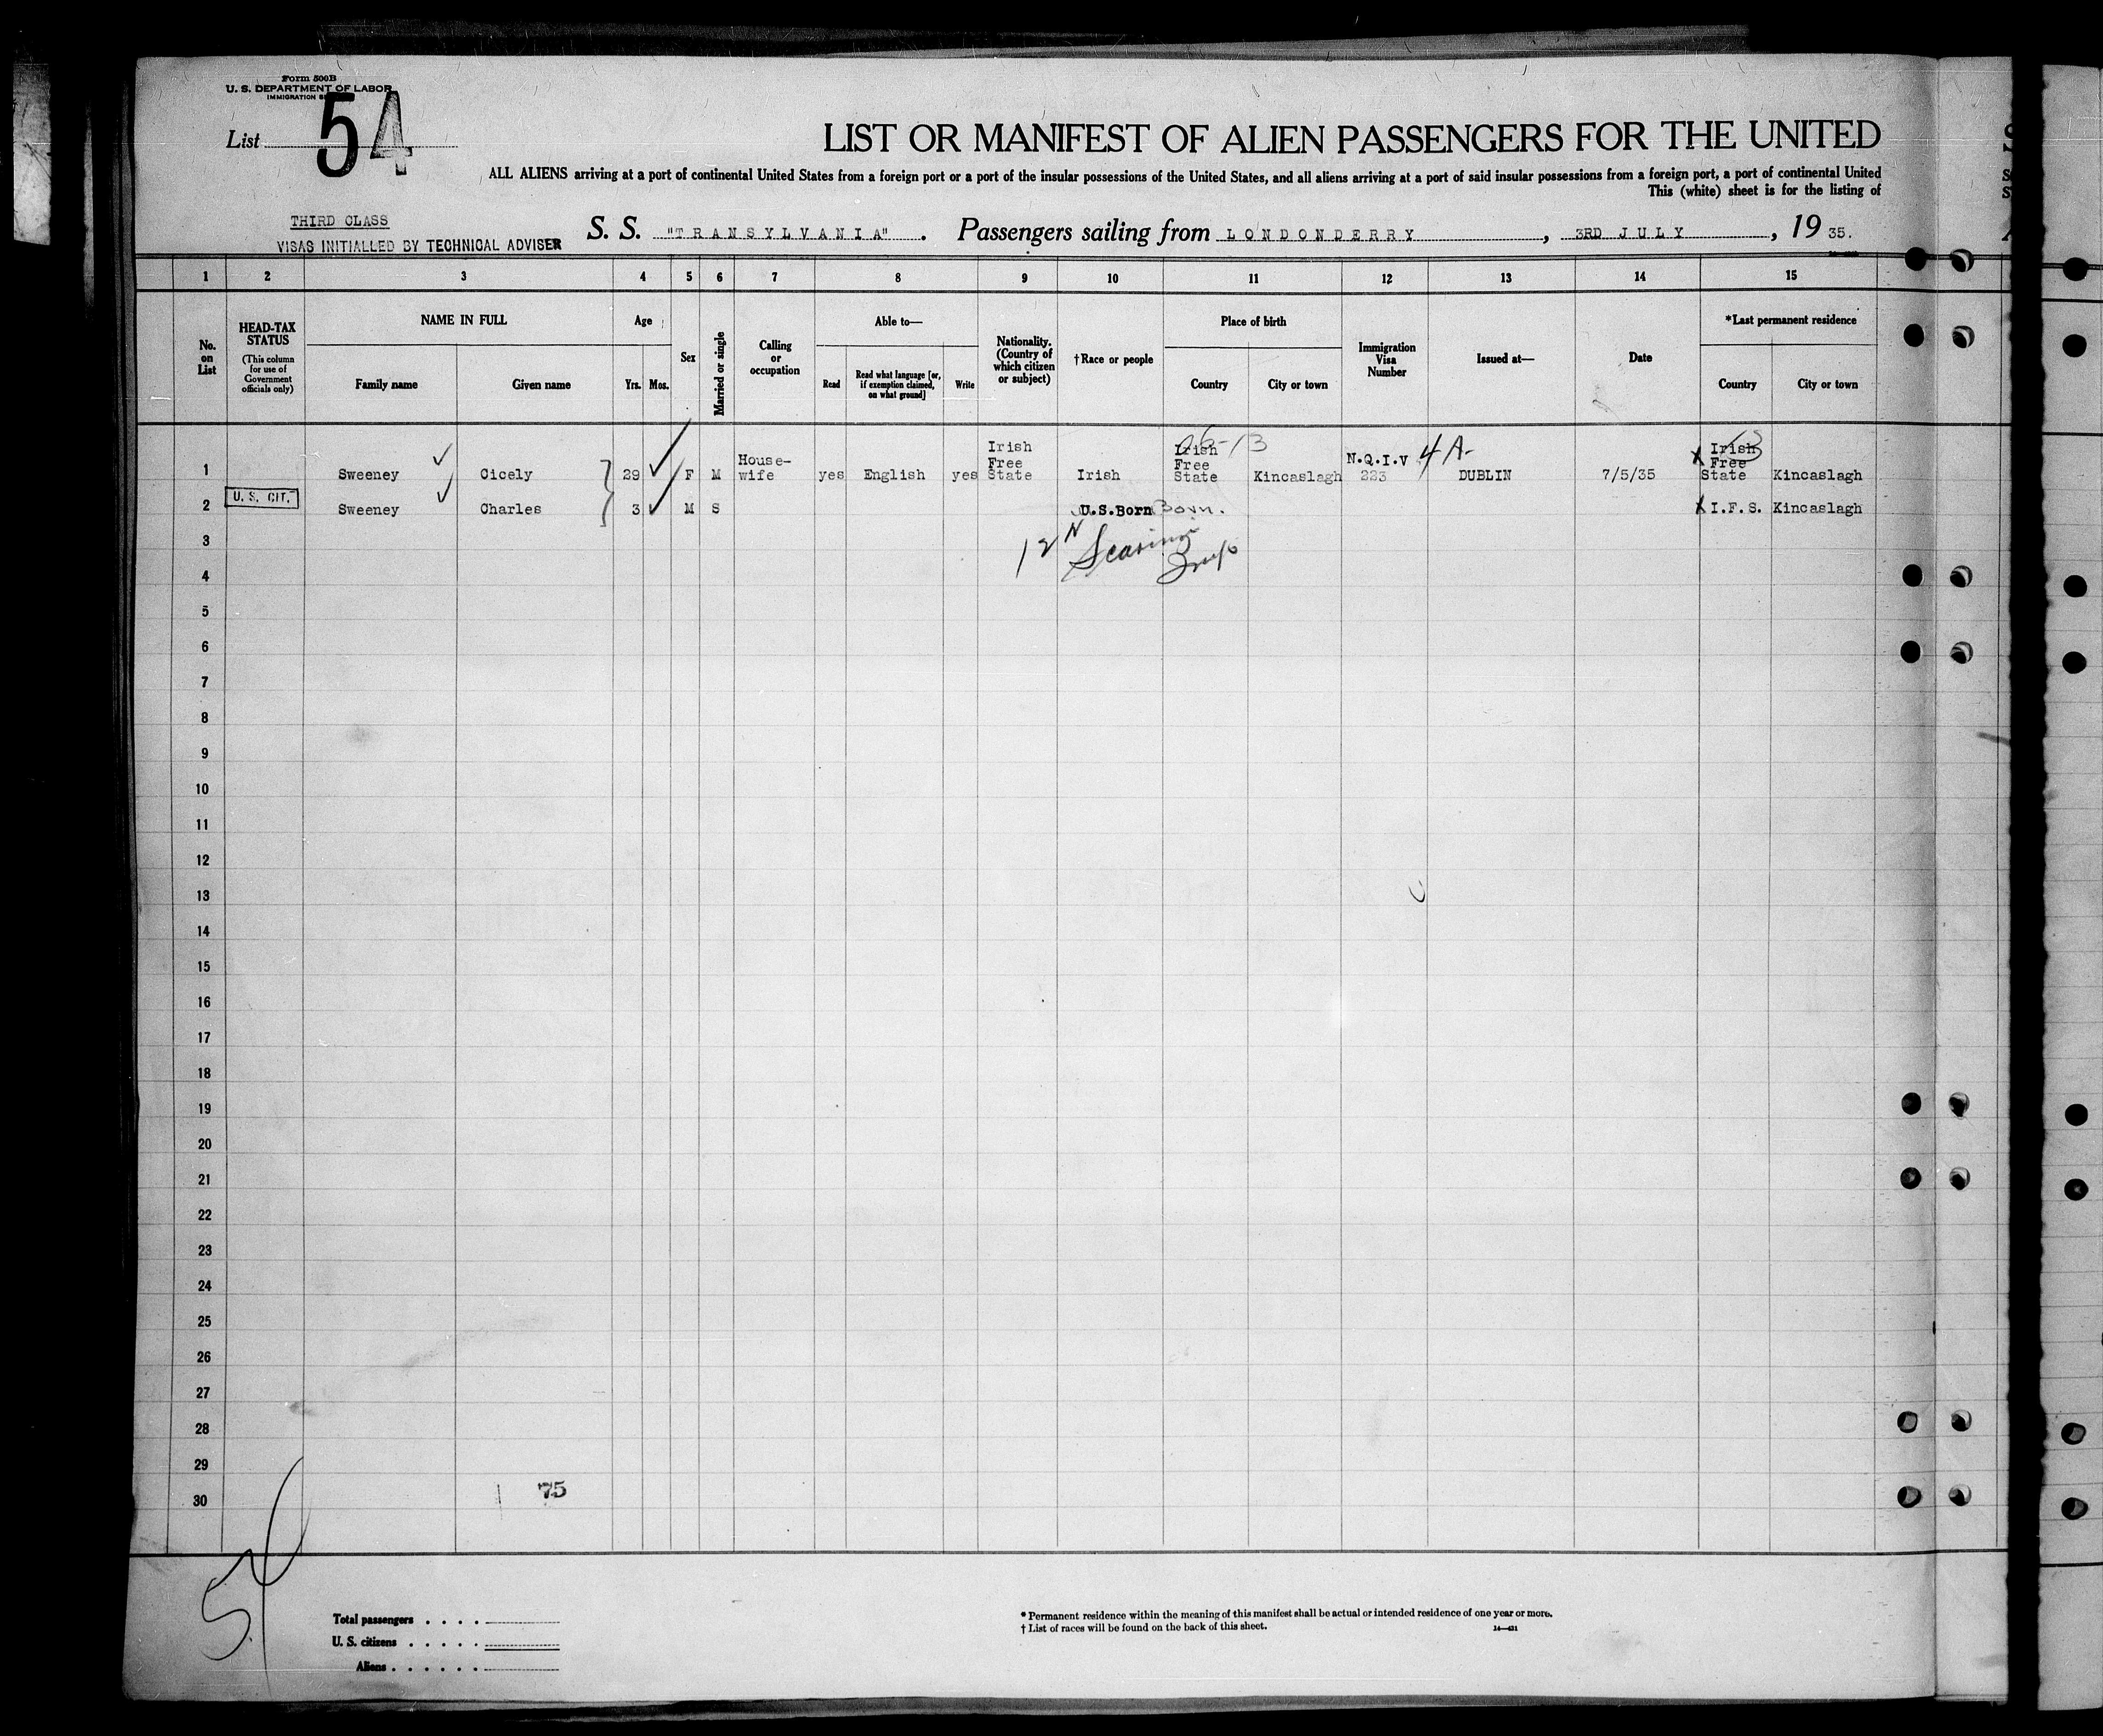 Form 500B
U. S. DEPARTMENT OF LABOR
IMMIGRATION
List 54
LIST OR MANIFEST OF ALIEN PASSENGERS FOR THE UNITED
ALL ALIENS arriving at a port of continental United States from a foreign port or a port of the insular possessions of the United States, and all aliens arriving at a port of said insular possessions from a foreign port, a port of continental United
This (white) sheet is for the listing of
THIRD CLASS
VISAS INITIALLED BY TECHNICAL ADVISER
S. S. "TRANSYLVANIA". Passengers sailing from LONDONDERRY, 3RD JULY, 1935.
1 2 3 4 5 6 7 8 9 10 11 12 13 14 15
No. on List
HEAD-TAX STATUS
(This column for use of Government officials only)
NAME IN FULL
Family name
Given name
Age
Yrs. Mos.
Sex
Married or single
Calling or occupation
Able to—
Read
Read what language [or, if exemption claimed, on what ground]
Write
Nationality. (Country of which citizen or subject)
†Race or people
Place of birth
Country
City or town
Immigration Visa Number
Issued at—
Date
*Last permanent residence
Country
City or town
1 Sweeney Cicely 29 F M House-wife yes English yes Irish Free State Irish Irish Free State Kincaslagh N.Q.I.V 223 4 A- DUBLIN 7/5/35 Irish Free State Kincaslagh
2 U. S. CIT. Sweeney Charles 3 M S U.S.Born Born. I.F.S. Kincaslagh
3
4
5
6
7
8
9
10
11
12
13
14
15
16
17
18
19
20
21
22
23
24
25
26
27
28
29
30
75
54
Total passengers . . . .
U. S. citizens . . . . .
Aliens . . . . . .
* Permanent residence within the meaning of this manifest shall be actual or intended residence of one year or more.
† List of races will be found on the back of this sheet.